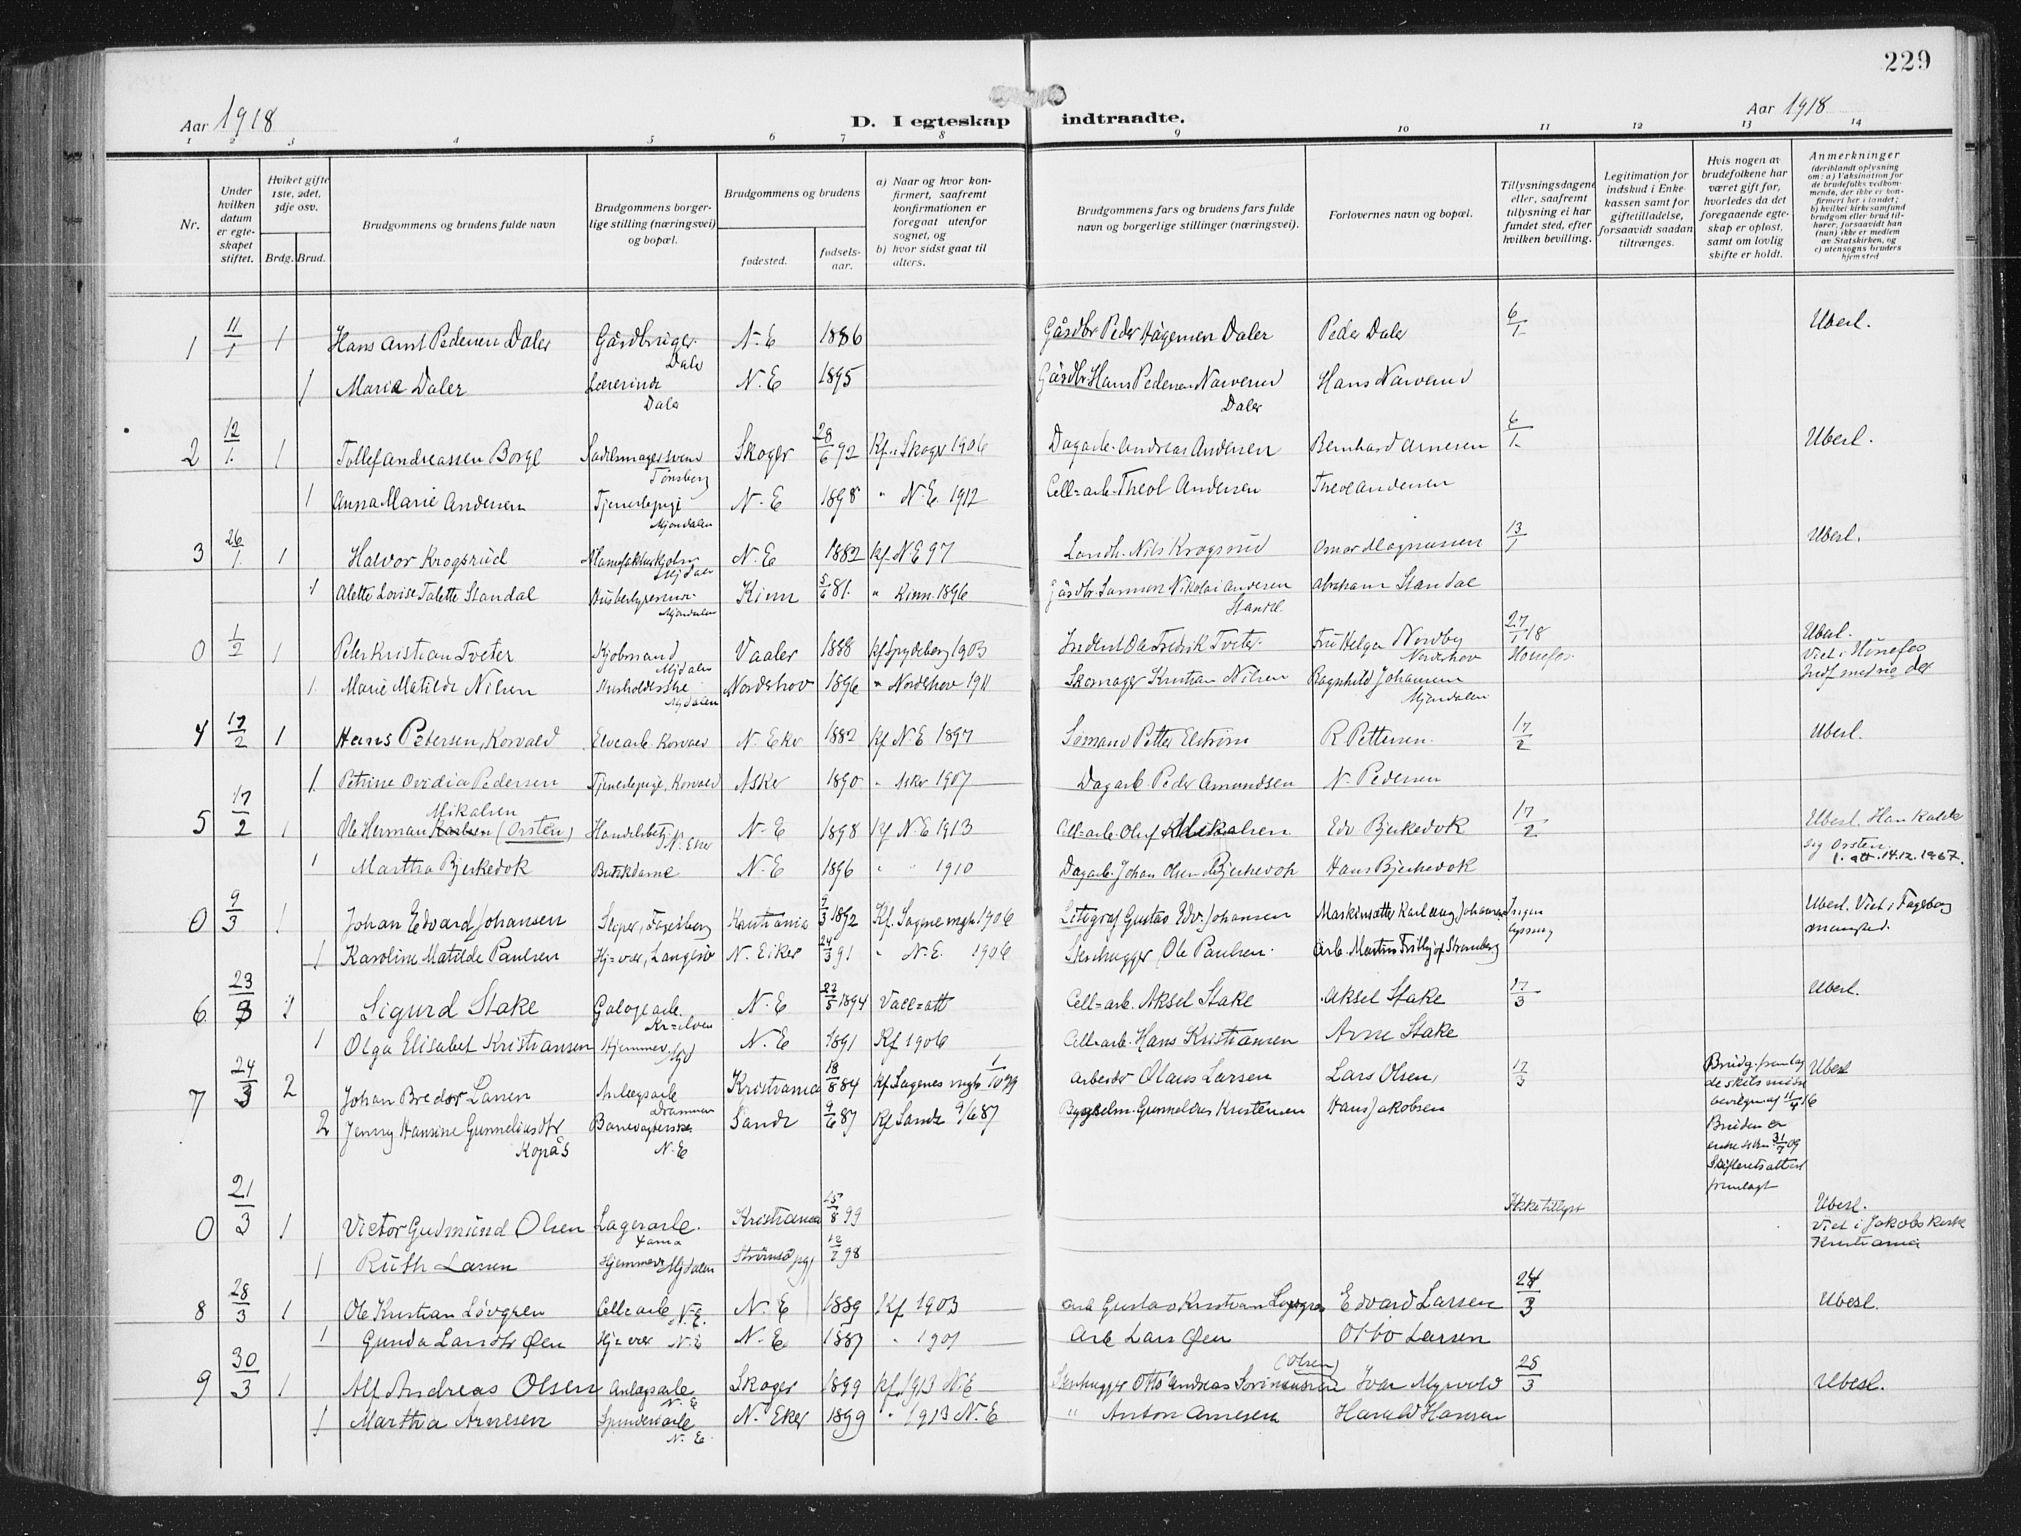 229
Aar 1918
D. I egteskap indtraadte.
Aar 1918
1 2 3 4 5 6 7 8 9 10 11 12 13 14
Nr.
Under hvilken datum er egteskapet stiftet.
Hvilket gifte 1ste, 2det, 3dje osv.
Brdg. Brud.
Brudgommens og brudens fulde navn
Brudgommens borgerlige stilling (næringsvei) og bopæl.
Brudgommens og brudens
fødested.
fødselsaar.
a) Naar og hvor konfirmert, saafremt konfirmationen er foregaat utenfor sognet, og
b) hvor sidst gaat til alters.
Brudgommens fars og brudens fars fulde navn og borgerlige stillinger (næringsvei).
Forlovernes navn og bopæl.
Tillysningsdagene eller, saafremt tillysning ei har fundet sted, efter hvilken bevilling.
Legitimation for indskud i Enkekassen samt for giftetilladelse, forsaavidt saadan tiltrænges.
Hvis nogen av brudefolkene har været gift før, hvorledes da det foregaaende egteskap er opløst, samt om lovlig skifte er holdt.
Anmerkninger (deriblandt oplysning om: a) Vaksination for de brudefolks vedkommende, der ikke er konfirmert her i landet; b) hvilket kirkesamfund brudgom eller brud tilhører, forsaavidt han (hun) ikke er medlem av Statskirken, og c) utensogns bruders hjemsted
1 11/1 1 Hans Amt Pedersen Daler Gårdbruger Daler N. E 1886 Gårdbr Peder Hågensen Daler Peder Daler 6/1 Ubesl.
1 Marie Daler Lærerinde Daler N. E 1895 Gårdbr Hans Pedersen Narverud Daler Hans Narverud
2 12/1 1 Tollef Andreassen Borge Sadelmagersvend Tønsberg Skoger 28/6 92 Kf. i Skoger 1906 Dagarb. Andreas Andersen Bernhard Arnesen 6/1 Ubesl.
1 Anna Marie Andersen Tjenestepige Mjøndalen N. E 1898 " N. E. 1912 Cell=arb. Theol Andersen Theol Andersen
3 26/1 1 Halvor Krogsrud Mjdalen N. E 1882 Kf N E 97 Landh. Nils Krogsrud Omar Magnussen 13/1 Ubesl.
1 Alette Lovise Talette Standal Mjøndalen Kinn 5/6 81. " Kinn 1896 Gårdbr. Nikolai Andersen Standal Abraham Standal
0 1/2 1 Peter Kristian Tveter Kjøbmand Mjdalen Vaaler 1888 Kf Spydeberg 1903 Ole Fredrik Tveter Fru Helga Nordby Norderhov 27/1 18 Hønefos Ubesl. Viet i Hønefos
1 Marie Matilde Nilsen Mjdalen Norderhov 1896 " Norderhov 1911 Skomager Kristian Nilsen Ragnhild Johansen Mjøndalen
4 17/2 1 Hans Petersen, Korvald Elvearb. Korvald N. Eker 1882 Kf N. E 1897 Sømand Petter Elstrøm R Pettersen. 17/2 Ubesl.
1 Petrine Ovidia Pedersen Tjenestepige, Korvald Asker 1890 " Asker 1907 Dagarb Peder Amundsen N. Pedersen
5 17/2 1 Ole Herman Mikalsen (Orsten) Handelsbetj. N. Eker N. E 1898 Kf N. E 1913 Cell=arb. Oluf Mikalsen Edv Bjerkedok 17/2 Ubesl. Han kalder sig Orsten 1. att. 14.12.1967.
1 Martha Bjerkedok Butikdame N. E 1896 " " 1910 Dagarb. Johan Olsen Bjerkedok Hans Bjerkedok
0 9/3 1 Johan Edvard Johansen Støper, Fagerberg Kristiania 9/3 1892 Kf. Sagene mgh 1906 Litograf Gustav Edv. Johansen Maskinsætter Karl Aug Johansen Ingen lysning Ubesl. Viet i Fagerborg menighed.
1 Karoline Matilde Paulsen Hj=vær, Langesø N. Eiker 24/3 91 " N. E. 1906 Stenhugger Ole Paulsen. Arb. Martin Fritjof Strømberg
6 23/3 1 Sigurd Stake Galogearb. Kr=elven N. E 22/5 1894 Vacc=att Cell=arb. Aksel Stake Aksel Stake 17/3 Ubesl.
1 Olga Elisabet Kristiansen Hjemmev. Mjd N. E. 1891 Kf 1906 Cell=arb. Hans Kristiansen Arne Stake
7 24/3 2 Johan Bredor Larsen Anlægsarb. Drammen Kristiania 18/8 84 Kf. Sagenes mgh 1/10 99 Arbeider Olaus Larsen Lars Olsen, 17/3 Brudg. fremlag de skilsmisse bevilgn af 11/4 16 Ubesl
2 Jenny Hansine Gunneliusdtr Kopås N. E Sande 9/6 87 Kf Sande 9/6 87 Gunnelius Kristensen Hans Jakobsen Bruden er enke siden 31/7 09 Skifteretsattest fremlagt
0 21/3 1 Victor Gudmund Olsen Lagerarb. Kristiania 25/8 99 Ikke tillyst Ubesl. Viet i Jakobs kirke Kristiania
1 Ruth Larsen Hjemmev. Mjdalen Strømsø 12/2 98
8 28/3 1 Ole Kristian Løvgren Cell=arb N. E. N. E 1889 Kf 1903 Arb Gustav Kristian Løvgren Edvard Larsen 24/3 Ubesl.
1 Gunda Larsdtr Øen Hj=vær N. E N. E 1887 " 1901 Arb Lars Øen Otto Larsen
9 30/3 1 Alf Andreas Olsen Anlægsarb. N. E Skoger 1899 Kf. 1913 N. E Stenhugger Otto Andreas Sørinussen (Olsen) Ivar Myrvold 25/3 Ubesl.
1 Martha Arnesen Spinneriarb. N. E. N. Eker 1899 " 1913 N. E " Anton Arnesen Harald Hansen